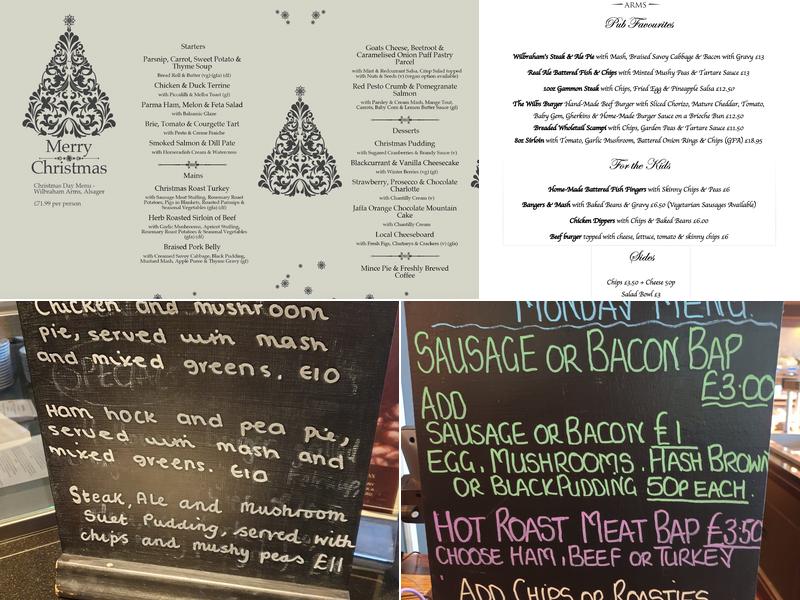 Merry
Christmas
Christmas Day Menu -
Wilbraham Arms, Alsager
£71.99 per person
Starters
Parsnip, Carrot, Sweet Potato &
Thyme Soup
Bread Roll & Butter (vg) (gfa) (df)
Chicken & Duck Terrine
with Piccalilli & Melba Toast (gf)
Parma Ham, Melon & Feta Salad
with Balsamic Glaze
Brie, Tomato & Courgette Tart
with Pesto & Creme Fraiche
Smoked Salmon & Dill Pate
with Horseradish Cream & Watercress
Mains
Christmas Roast Turkey
with Sausage Meat Stuffing, Rosemary Roast
Potatoes, Pigs in Blankets, Roasted Parsnips &
Seasonal Vegetables (gfa) (df)
Herb Roasted Sirloin of Beef
with Garlic Mushrooms, Apricot Stuffing,
Rosemary Roast Potatoes & Seasonal Vegetables
(gfa) (df)
Braised Pork Belly
with Creamed Savoy Cabbage, Black Pudding,
Mustard Mash, Apple Puree & Thyme Gravy (gf)
Goats Cheese, Beetroot &
Caramelised Onion Puff Pastry
Parcel
with Mint & Redcurrant Salsa, Crisp Salad topped
with Nuts & Seeds (v) (vegan option available)
Red Pesto Crumb & Pomegranate
Salmon
with Parsley & Cream Mash, Mange Tout,
Carrots, Baby Corn & Lemon Butter Sauce (gf)
Desserts
Christmas Pudding
with Sugared Cranberries & Brandy Sauce (v)
Blackcurrant & Vanilla Cheesecake
with Winter Berries (vg) (gf)
Strawberry, Prosecco & Chocolate
Charlotte
with Chantilly Cream (v)
Jaffa Orange Chocolate Mountain
Cake
with Chantilly Cream
Local Cheeseboard
with Fresh Figs, Chutneys & Crackers (v) (gfa)
Mince Pie & Freshly Brewed
Coffee
ARMS
Pub Favourites
Wilbraham's Steak & Ale Pie with Mash, Braised Savoy Cabbage & Bacon with Gravy £13
Real Ale Battered Fish & Chips with Minted Mushy Peas & Tartare Sauce £13
10oz Gammon Steak with Chips, Fried Egg & Pineapple Salsa £12.50
The Wilbs Burger Hand-Made Beef Burger with Sliced Chorizo, Mature Cheddar, Tomato,
Baby Gem, Gherkins & Home-Made Burger Sauce on a Brioche Bun £12.50
Breaded Wholetail Scampi with Chips, Garden Peas & Tartare Sauce £11.50
8oz Sirloin with Tomato, Garlic Mushroom, Battered Onion Rings & Chips (GFA) £18.95
For the Kids
Home-Made Battered Fish Fingers with Skinny Chips & Peas £6
Bangers & Mash with Baked Beans & Gravy £6.50 (Vegetarian Sausages Available)
Chicken Dippers with Chips & Baked Beans £6.00
Beef burger topped with cheese, lettuce, tomato & skinny chips £6
Sides
Chips £3.50 + Cheese 50p
Salad Bowl £3
Chicken and mushroom
pie, served with mash
and mixed greens. £10
Ham hock and pea pie,
served with mash and
mixed greens. £10
Steak, Ale and mushroom
Suet Pudding, served with
chips and mushy peas £11
MONDAY MENU.
SAUSAGE OR BACON BAP
£3.00
ADD
SAUSAGE OR BACON £1
EGG, MUSHROOMS, HASH BROWN
OR BLACK PUDDING 50P EACH.
HOT ROAST MEAT BAP £3.50
CHOOSE HAM, BEEF OR TURKEY
ADD CHIPS OR ROASTIES